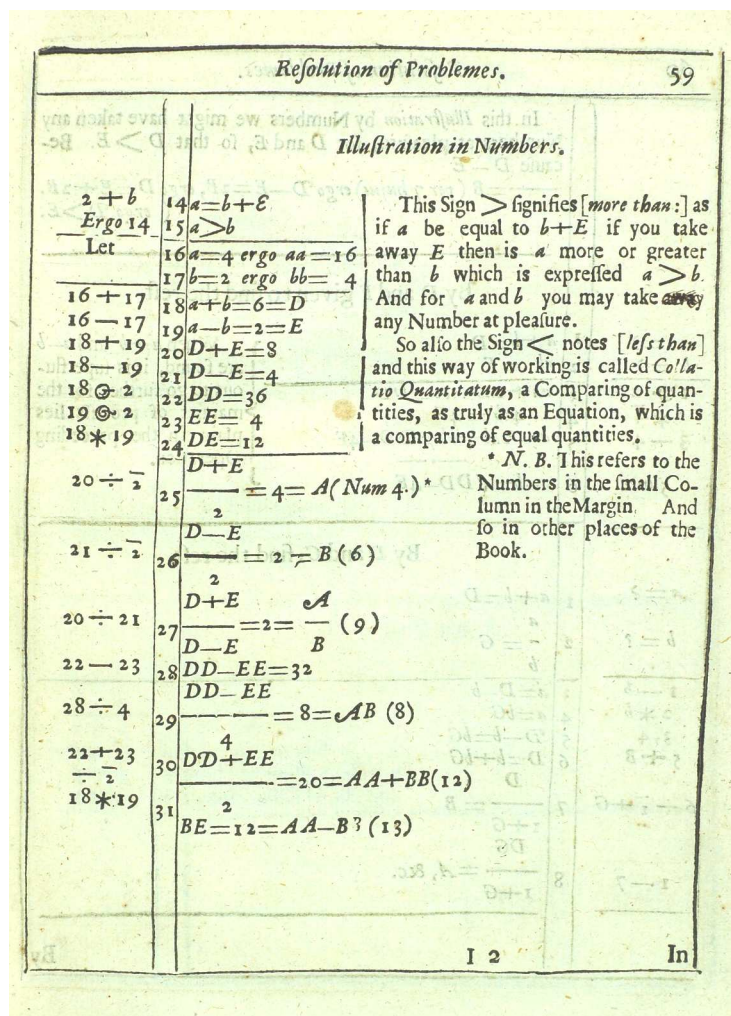 Reſolution of Problemes. 59
Illuſtration in Numbers.
2 + b 14 a=b+E
Ergo 14 15 a>b
Let 16 a=4 ergo aa=16
17 b=2 ergo bb= 4
16+17 18 a+b=6=D
16—17 19 a—b=2=E
18+19 20 D+E=8
18—19 21 D—E=4
18 @ 2 22 DD=36
19 @ 2 23 EE= 4
18*19 24 DE=12
D+E
20 ÷ 2 25 —— = 4= A(Num 4.)*
2
D—E
21 ÷ 2 26 —— = 2 = B (6)
2
D+E A
20 ÷ 21 27 —— =2= — (9)
D—E B
22 — 23 28 DD—EE=32
DD—EE
28÷4 29 —— = 8= AB (8)
4
22+23 30 DD+EE
÷ 2 —— =20=AA+BB(12)
2
18*19 31 BE=12=AA—BB (13)
This Sign > ſignifies [more than:] as
if a be equal to b+E if you take
away E then is a more or greater
than b which is expreſſed a>b.
And for a and b you may take
any Number at pleaſure.
So alſo the Sign < notes [leſs than]
and this way of working is called Colla-
tio Quantitatum, a Comparing of quan-
tities, as truly as an Equation, which is
a comparing of equal quantities.
* N. B. This refers to the
Numbers in the ſmall Co-
lumn in the Margin. And
ſo in other places of the
Book.
I 2 In